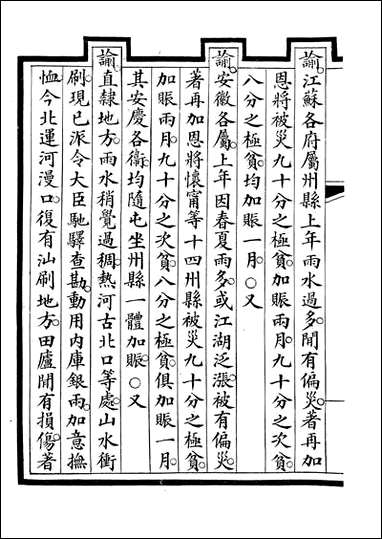 諭江蘇各府屬州縣上年雨水過多。間有偏災。著再加
恩將被災九十分之極貧。加賑兩月。九十分之次貧。
八分之極貧。均加賑一月。○又
諭安徽各屬。上年因春夏雨多。或江湖泛漲。被有偏災。
著再加恩將懷甯等十四州縣被災九十分之極貧。
加賑兩月。九十分之次貧。八分之極貧。俱加賑一月。
其安慶各衞。均隨屯坐州縣一體加賑。○又
諭直隸地方。雨水稍覺過稠。熱河古北口等處。山水衝
刷。現已派令大臣馳驛查勘。動用內庫銀兩。加意撫
恤。今北運河漫口。復有汕刷地方。田廬間有損傷。著